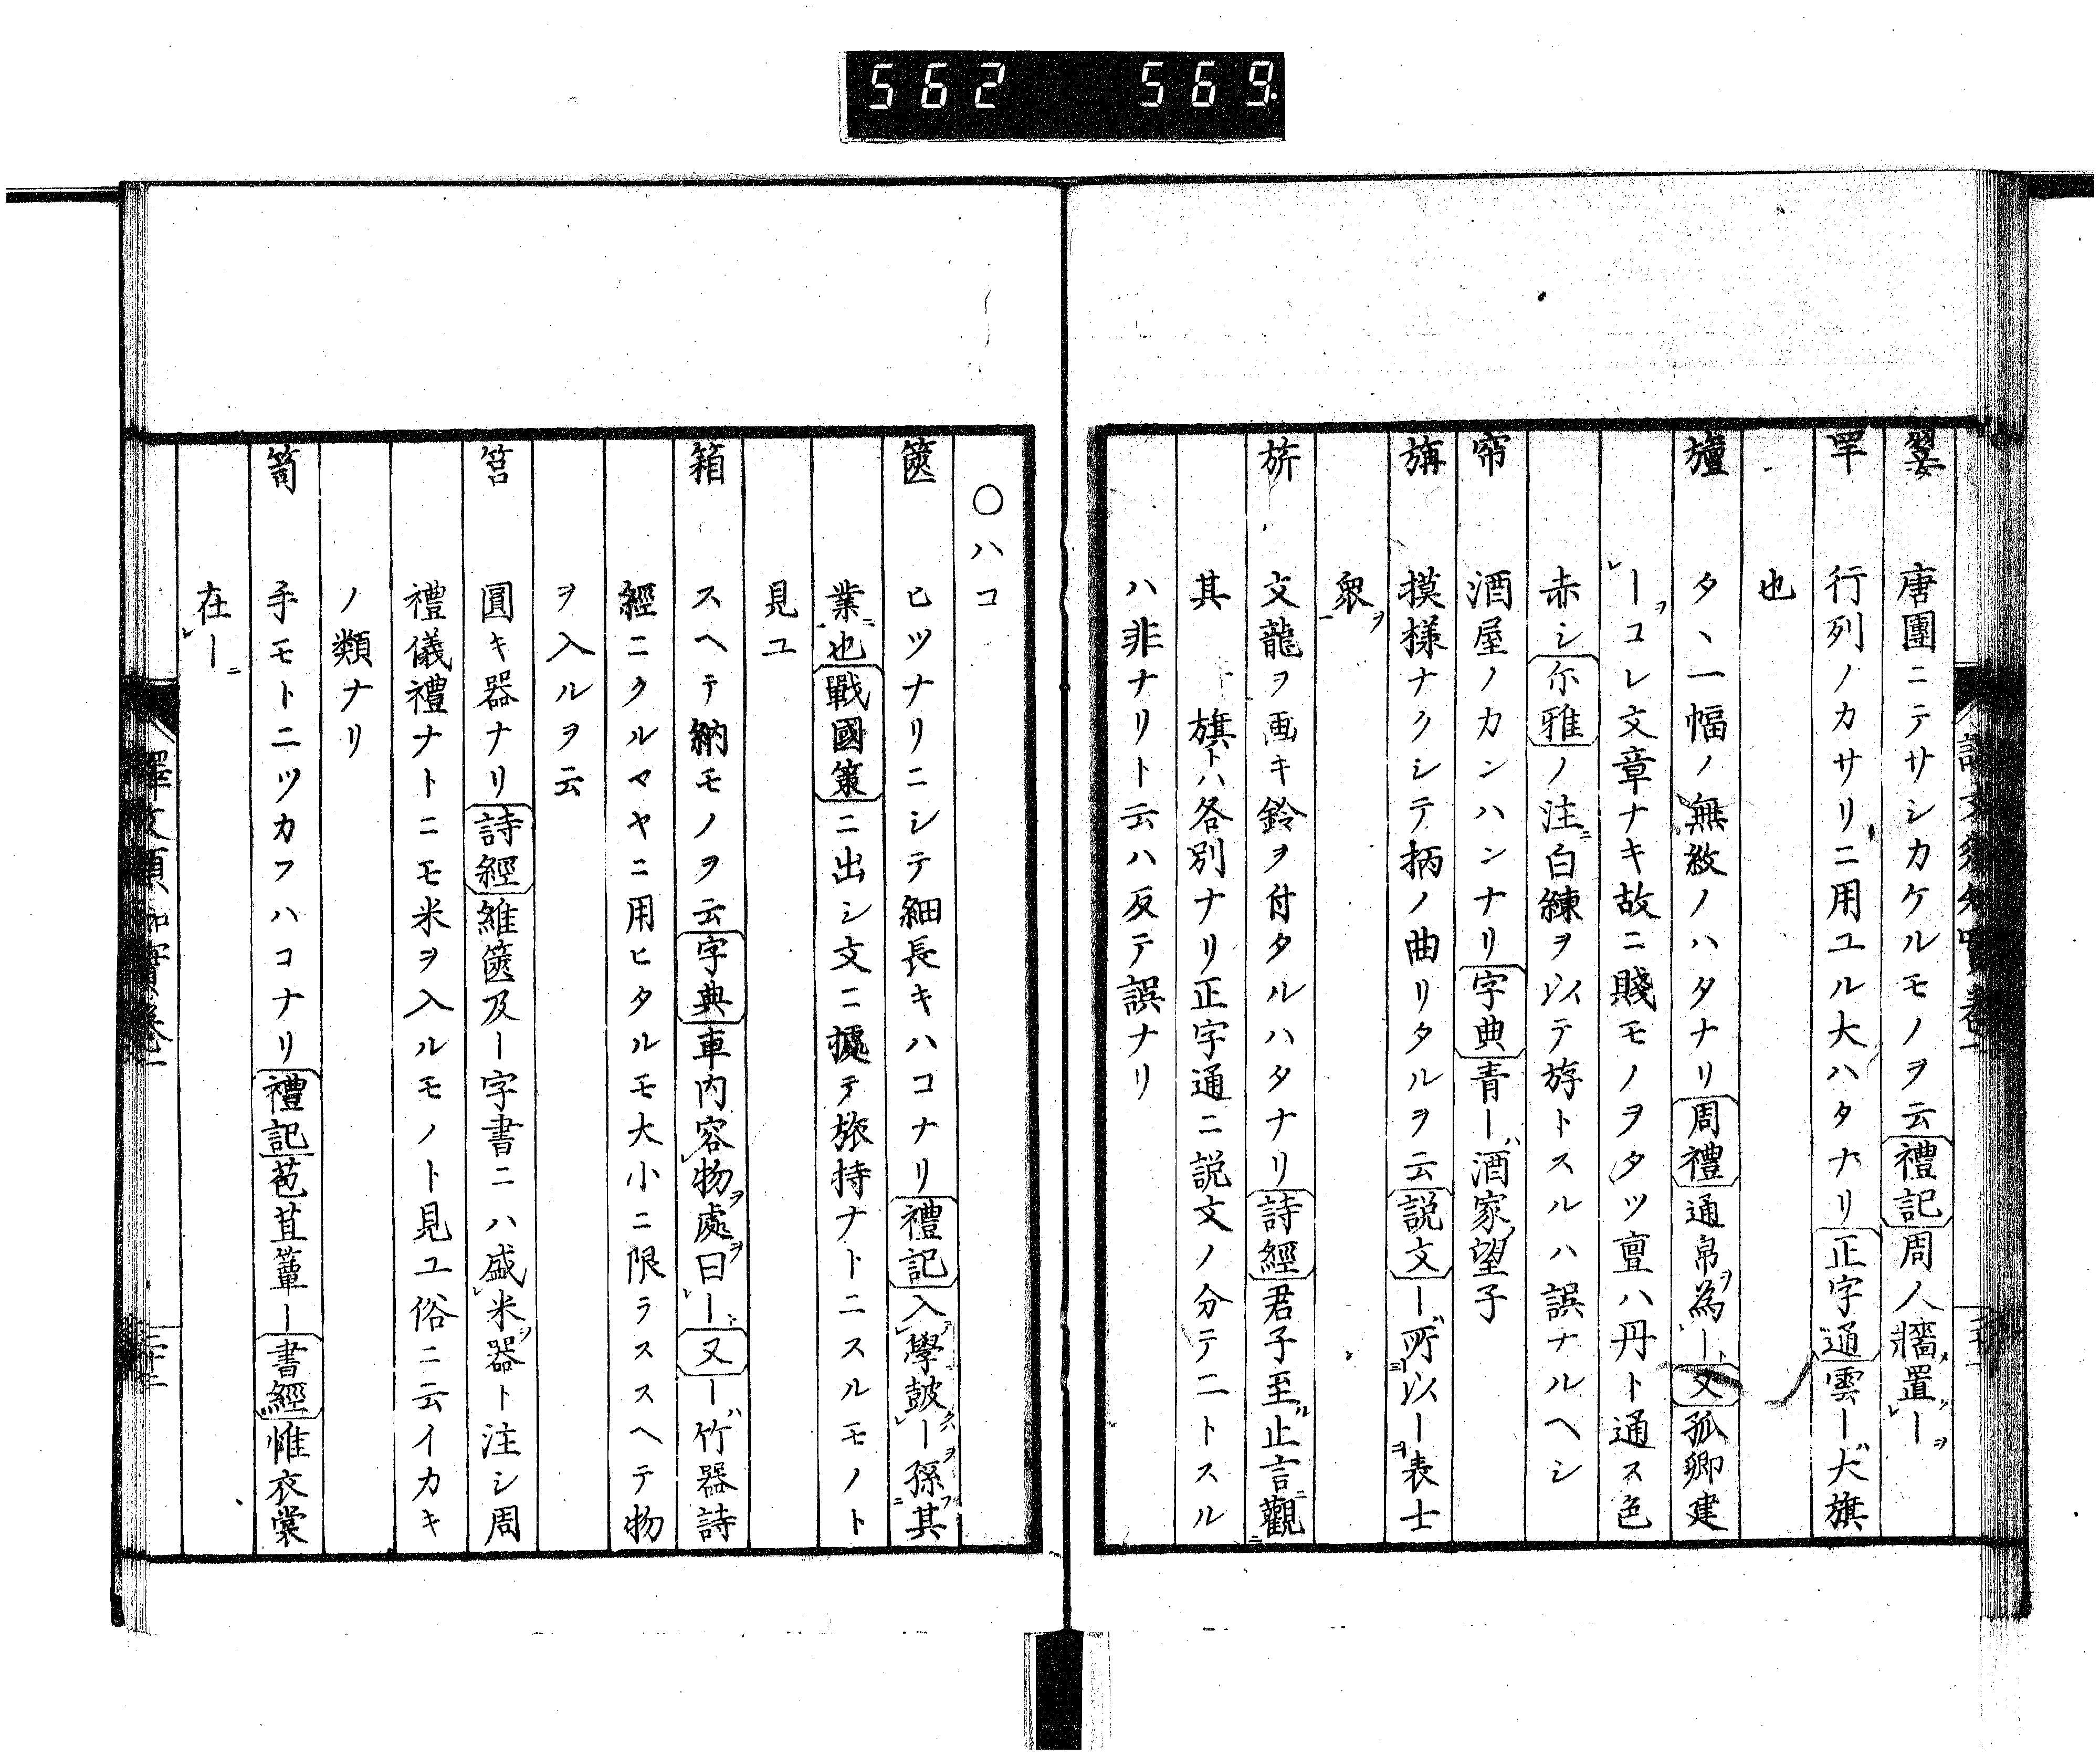 562 569
翣 唐團ニテサシカケルモノヲ云禮記周人牆置ー
罕 行列ノカサリニ用ユル大ハタナリ正字通雲ー大旗
也
旜 タヽ一幅ノ無紋ノハタナリ周禮通帛為ー又孤卿建
ーコレ文章ナキ故ニ賤モノヲタツ亶ハ丹ト通ス色
赤シ尓雅ノ注白練ヲ以テ斿トスルハ誤ナルヘシ
帘 酒屋ノカンハンナリ字典青ー酒家望子
旃 摸様ナクシテ柄ノ曲リタルヲ云説文ー所以ー表士
衆
旂 文龍ヲ画キ鈴ヲ付タルハタナリ詩經君子至止言觀
其 旗トハ各別ナリ正字通ニ説文ノ分テ二トスル
ハ非ナリト云ハ反テ誤ナリ
〇ハコ
篋 ヒツナリニシテ細長キハコナリ禮記入學鼓ー孫其
業也戰國策ニ出シ文ニ據テ旅持ナトニスルモノト
見ユ
箱 スヘテ納モノヲ云字典車内容物處曰ー又ー竹器詩
經ニクルマヤニ用ヒタルモ大小ニ限ラススヘテ物
ヲ入ルヲ云
筥 圓キ器ナリ詩經維篋及ー字書ニハ盛米器ト注シ周
禮儀禮ナトニモ米ヲ入ルモノト見ユ俗ニ云イカキ
ノ類ナリ
笥 手モトニツカフハコナリ禮記苞苴簞ー書經惟衣裳
在ー
譯文須知實卷一